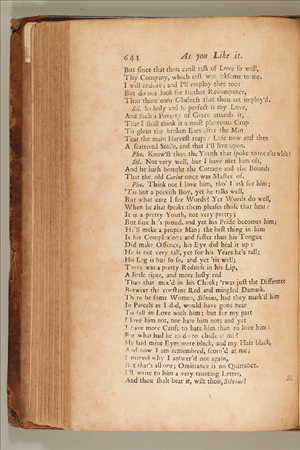 644 As you Like it.
But since that thou canst talk of Love so well,
Thy Company, which erst was irksome to me,
I will endure; and I'll employ thee too:
But do not look for further Recompence,
Than thine own Gladness that thou art imploy'd.
Sil. So holy and so perfect is my Love,
And such a Poverty of Grace attends it,
That I shall think it a most plenteous Crop
To glean the broken Ears after the Man
That the main Harvest reaps: lose now and then
A scatter'd Smile, and that I'll live upon.
Phe. Know'st thou the Youth that spoke to me e'er while?
Sil. Not very well, but I have met him oft,
And he hath bought the Cottage and the Bounds
That the old Carlot once was Master of.
Phe. Think not I love him, tho' I ask for him;
'Tis but a peevish Boy, yet he talks well,
But what care I for Words? Yet Words do well,
When he that speaks them pleases those that hear:
It is a pretty Youth, not very pretty;
But sure he's proud, and yet his Pride becomes him;
He'll make a proper Man; the best thing in him
Is his Complexion; and faster than his Tongue
Did make Offence, his Eye did heal it up:
He is not very tall, yet for his Years he's tall;
His Leg is but so so, and yet 'tis well;
There was a pretty Redness in his Lip,
A little riper, and more lusty red
Than that mix'd in his Cheek; 'twas just the Difference
Betwixt the constant Red and mingled Damask.
There be some Women, Silvius, had they mark'd him
In Parcels as I did, would have gone near
To fall in Love with him; but for my part
I love him not, nor hate him not; and yet
I have more Cause to hate him than to love him:
For what had he to do to chide at me?
He said mine Eyes were black, and my Hair black,
And now I am remembred, scorn'd at me;
I marvel why I answer'd not again,
But that's all one; Omittance is no Quittance.
I'll write to him a very taunting Letter,
And thou shalt bear it, wilt thou, Silvius?
Sil.